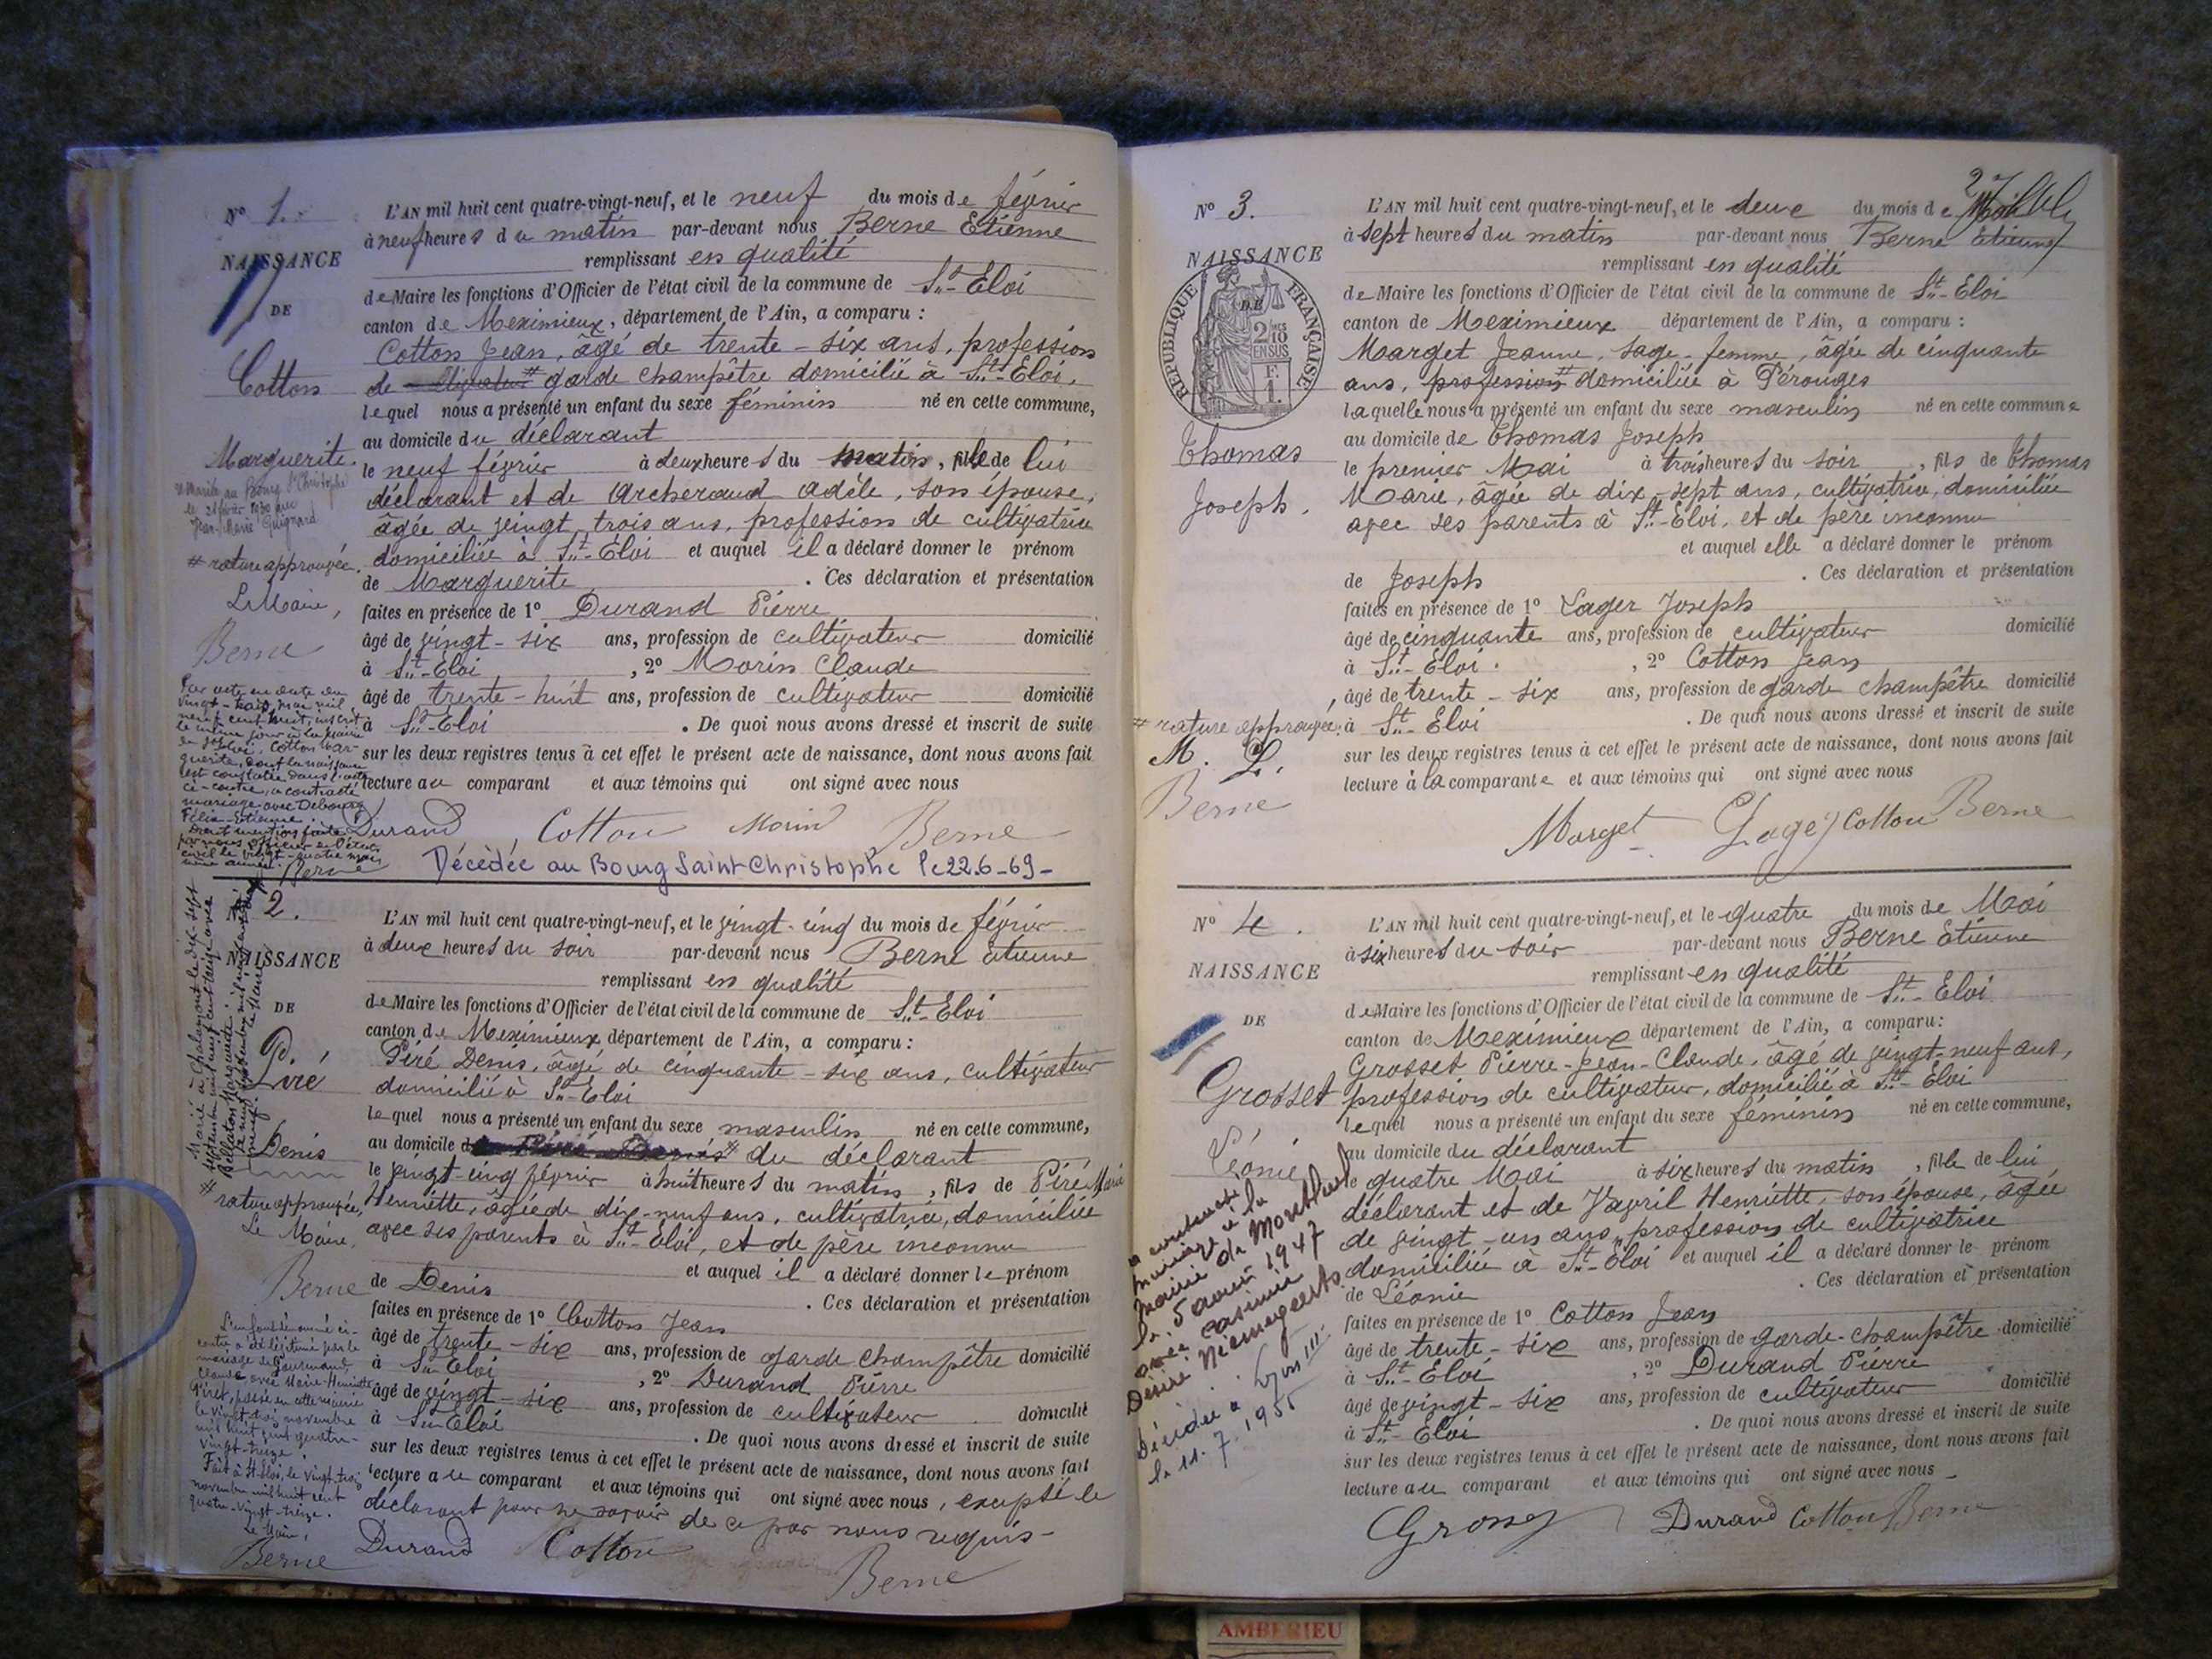 N° 1.
NAISSANCE
DE
Cotton
Marguerite.
remariée au Bourg St Christophe
le 21 février 1930 avec
Jean-Marie Guignard
# rature approuvée.
Le Maire,
Berne
Par acte en date du
vingt-trois mai mil
neuf cent huit, inscrit
le même jour à la mairie
de St Eloi, Cotton Mar-
guerite, dont la naissance
est constatée dans l'acte
ci-contre, a contracté
mariage avec
Félix-Etienne.
Dont mention faite
par nous officier de l'état
civil le vingt-quatre mai
même année.
Berne
L'AN mil huit cent quatre-vingt-neuf, et le neuf du mois de février
à neuf heures du matin par-devant nous Berne Etienne
remplissant en qualité
de Maire les fonctions d'Officier de l'état civil de la commune de St-Eloi
canton de Meximieux, département de l'Ain, a comparu :
Cotton Jean, âgé de trente-six ans, profession
de # garde champêtre domicilié à St-Eloi.
lequel nous a présenté un enfant du sexe féminin né en cette commune,
au domicile du déclarant
le neuf février à deux heures du matin, fille de lui
déclarant et de Archeraud Adèle, son épouse,
âgée de vingt trois ans, profession de cultivatrice
domiciliée à St-Eloi et auquel il a déclaré donner le prénom
de Marguerite. Ces déclaration et présentation
faites en présence de 1° Durand Pierre
âgé de vingt-six ans, profession de cultivateur domicilié
à St-Eloi, 2° Morin Claude
âgé de trente-huit ans, profession de cultivateur domicilié
à St-Eloi. De quoi nous avons dressé et inscrit de suite
sur les deux registres tenus à cet effet le présent acte de naissance, dont nous avons fait
lecture au comparant et aux témoins qui ont signé avec nous
Durand Cotton Morin Berne
Décédée au Bourg Saint-Christophe le 22.6-69-
2.
NAISSANCE
DE
Piré
Denis
Marié à Chalamont le dix-sept
# rature approuvée,
Le Maire,
Berne
L'enfant dénommé ci-
contre a été légitimé par le
mariage de
Claude avec Marie-Henriette
Piret, passé en cette mairie
le vingt-trois novembre
mil huit cent quatre-
vingt-treize.
Fait à St Eloi, le vingt-trois
novembre mil huit cent
quatre-vingt-treize.
Le Maire,
Berne
L'AN mil huit cent quatre-vingt-neuf, et le vingt-cinq du mois de février
à deux heures du soir par-devant nous Berne Etienne
remplissant en qualité
de Maire les fonctions d'Officier de l'état civil de la commune de St-Eloi
canton de Meximieux département de l'Ain, a comparu :
Piré Denis, âgé de cinquante-six ans, cultivateur
domicilié à St-Eloi
lequel nous a présenté un enfant du sexe masculin né en cette commune,
au domicile # du déclarant
le vingt-cinq février à huit heures du matin, fils de Piré Marie
Henriette, âgée de dix-neuf ans, cultivatrice, domiciliée
avec ses parents à St-Eloi, et de père inconnu
et auquel il a déclaré donner le prénom
de Denis. Ces déclaration et présentation
faites en présence de 1° Cotton Jean
âgé de trente-six ans, profession de garde champêtre domicilié
à St-Eloi, 2° Durand Pierre
âgé de vingt-six ans, profession de cultivateur domicilié
à St-Eloi. De quoi nous avons dressé et inscrit de suite
sur les deux registres tenus à cet effet le présent acte de naissance, dont nous avons fait
lecture au comparant et aux témoins qui ont signé avec nous, excepté le
déclarant pour ne savoir de ce par nous requis-
Durand Cotton
Berne
N° 3.
NAISSANCE
DE
REPUBLIQUE FRANÇAISE
2/10 EN SUS
F. 1.
Thomas
Joseph.
# rature approuvée.
M. L.
Berne
L'AN mil huit cent quatre-vingt-neuf, et le deux du mois de Mai
à sept heures du matin par-devant nous Berne Etienne
remplissant en qualité
de Maire les fonctions d'Officier de l'état civil de la commune de St-Eloi
canton de Meximieux département de l'Ain, a comparu :
Marget Jeanne, sage-femme, âgée de cinquante
ans, profession # domiciliée à Pérouges
laquelle nous a présenté un enfant du sexe masculin né en cette commune
au domicile de Thomas Joseph
le premier Mai à trois heures du soir, fils de Thomas
Marie, âgée de dix-sept ans, cultivatrice, domiciliée
avec ses parents à St-Eloi, et de père inconnu
et auquel elle a déclaré donner le prénom
de Joseph. Ces déclaration et présentation
faites en présence de 1° Lager Joseph
âgé de cinquante ans, profession de cultivateur domicilié
à St-Eloi., 2° Cotton Jean
âgé de trente-six ans, profession de garde champêtre domicilié
à St-Eloi. De quoi nous avons dressé et inscrit de suite
sur les deux registres tenus à cet effet le présent acte de naissance, dont nous avons fait
lecture à la comparante et aux témoins qui ont signé avec nous
Marget Lager Cotton Berne
N° 4.
NAISSANCE
DE
Grosset
Léonie
a contracté
mariage à la
mairie de
le 5 1947
avec Casimir
Désiré
Décédée à Lyon III
le 11.7.1955
L'AN mil huit cent quatre-vingt-neuf, et le quatre du mois de Mai
à six heures du soir par-devant nous Berne Etienne
remplissant en qualité
de Maire les fonctions d'Officier de l'état civil de la commune de St-Eloi
canton de Meximieux département de l'Ain, a comparu :
Grosset Pierre-Jean-Claude, âgé de vingt-neuf ans,
profession de cultivateur, domicilié à St-Eloi
lequel nous a présenté un enfant du sexe féminin né en cette commune,
au domicile du déclarant
le quatre Mai à six heures du matin, fille de lui
déclarant et de Vayril Henriette, son épouse, âgée
de vingt-un ans, profession de cultivatrice
domiciliée à St-Eloi et auquel il a déclaré donner le prénom
de Léonie. Ces déclaration et présentation
faites en présence de 1° Cotton Jean
âgé de trente-six ans, profession de garde-champêtre domicilié
à St-Eloi, 2° Durand Pierre
âgé de vingt-six ans, profession de cultivateur domicilié
à St-Eloi. De quoi nous avons dressé et inscrit de suite
sur les deux registres tenus à cet effet le présent acte de naissance, dont nous avons fait
lecture au comparant et aux témoins qui ont signé avec nous
Durand Cotton Berne
AMBERIEU